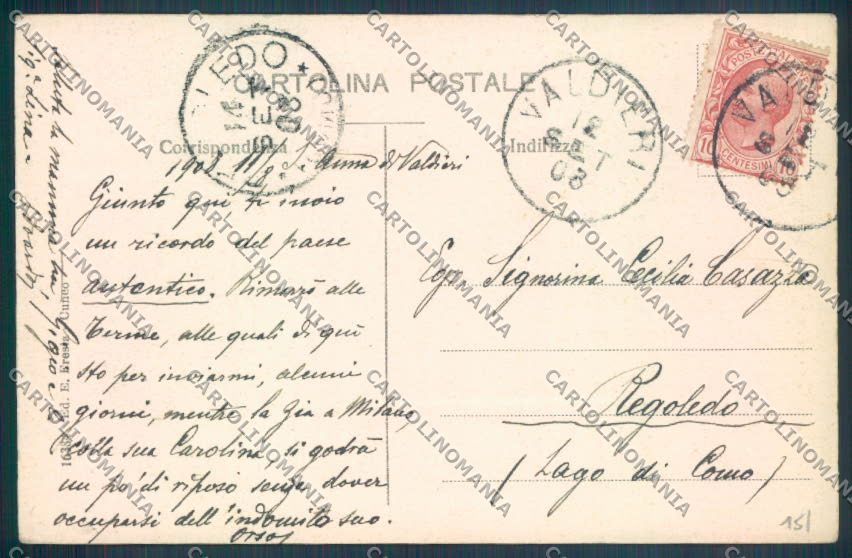 CARTOLINA POSTALE
Corrispondenza
Indirizzo
EDO
14
SET
08
VALDIERI
12
SET
08
VA
POSTE
CENTESIMI
1908 11/9 S. Anna di Valdieri
Giunto qui ti invio
un ricordo del paese
autentico. Rimarrò alle
Terme, alle quali di qui
sto per inviarmi, alcuni
giorni, mentre la zia a Milano,
colla sua Carolina, si godrà
un po' di riposo senza dover
occuparsi dell'indomito suo.
orso!
Saluta la mamma tua,
Sig.a Lina
Ed. E. Cuneo
Egr. Signorina Cecilia Casazza
Regoledo
(Lago di Como)
15/
CARTOLINOMANIA